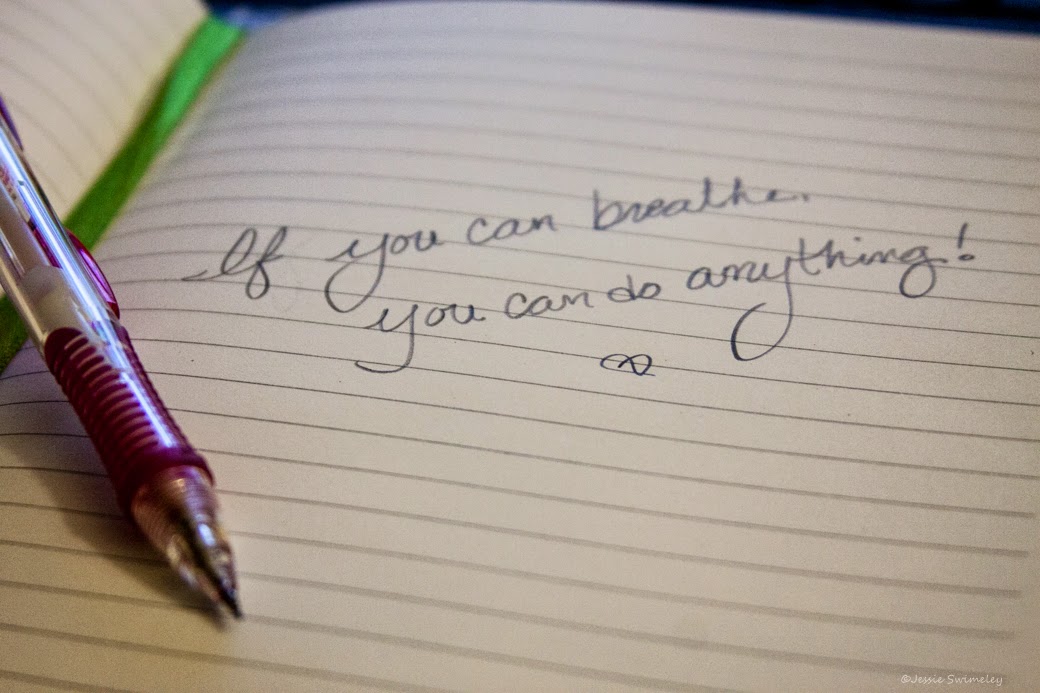 If you can breathe.
you can do anything!
©Jessie Swimeley